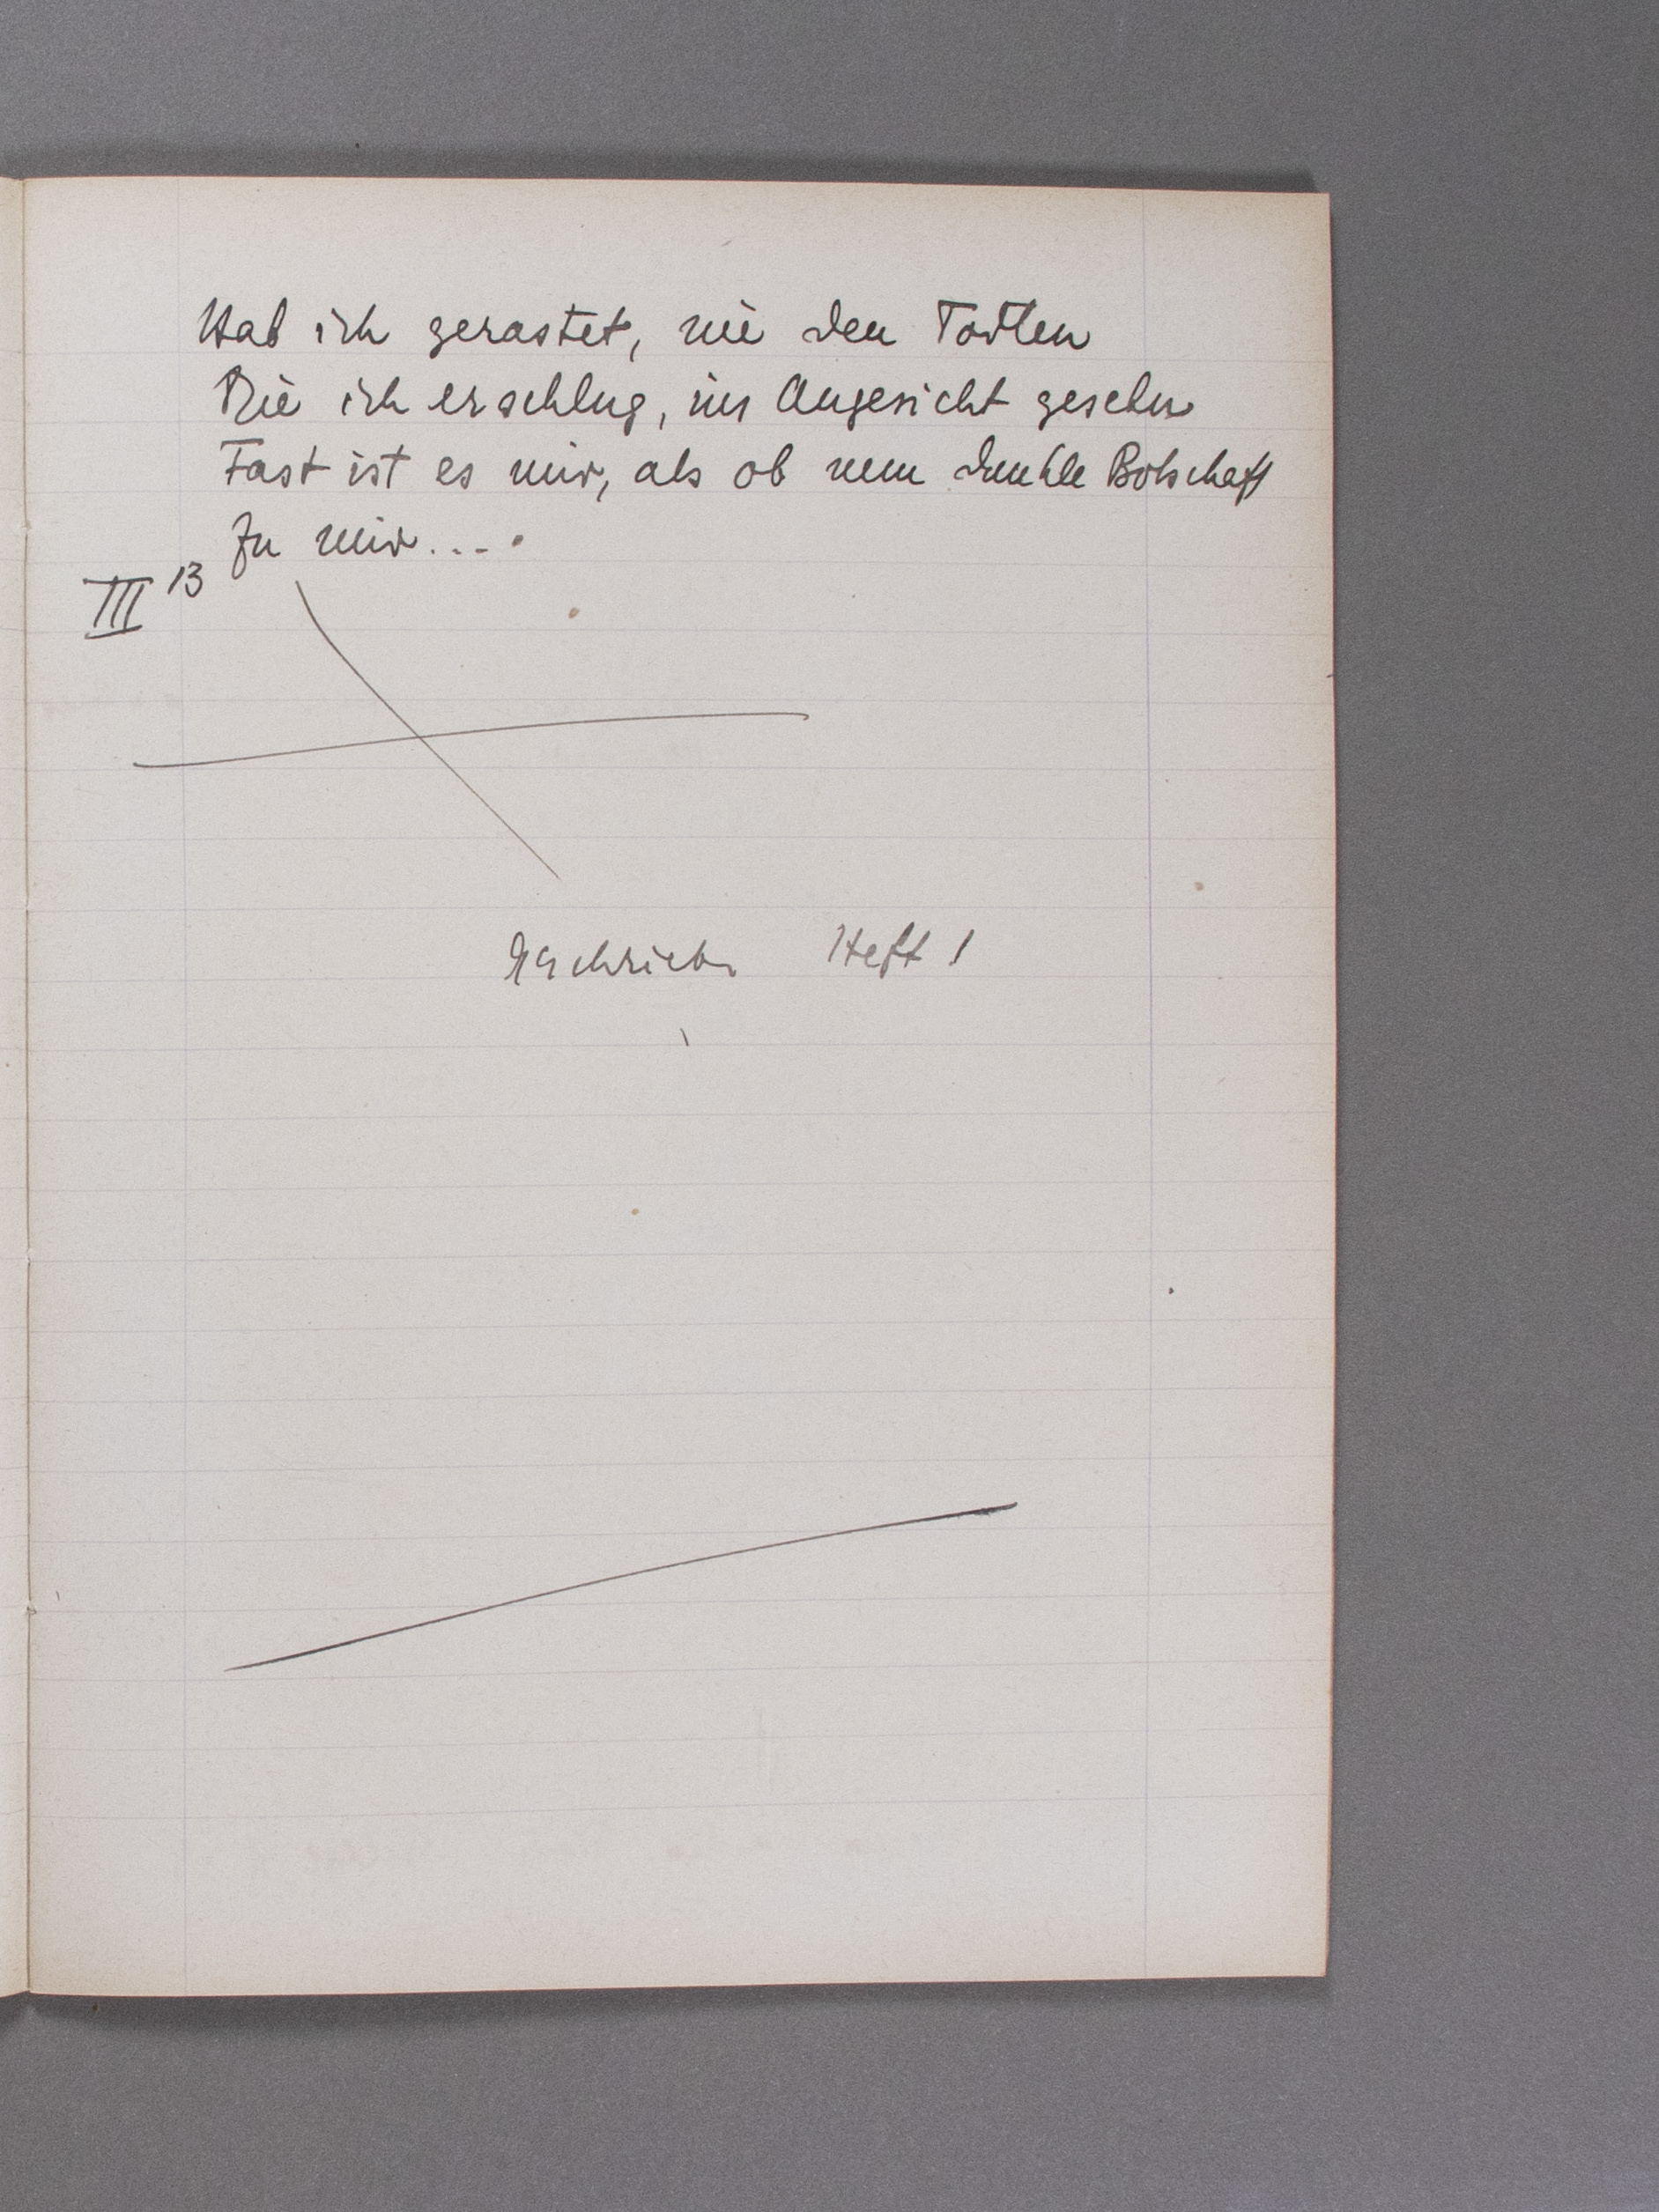 Hab ich gerastet, nie den Todten
Die ich erschlug, ins Angesicht gesehn
Fast ist es mir, als ob nun dunkle Botschaft
Zu mir....
III 13
Heft 1